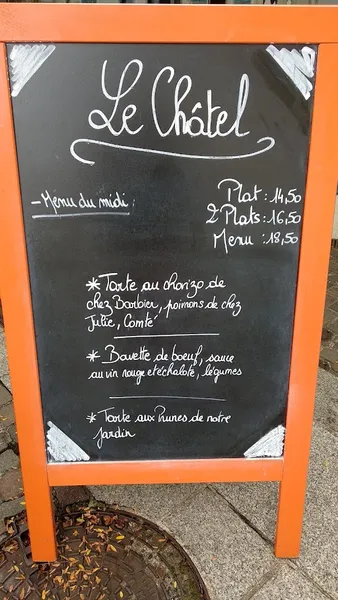 Le Châtel
- Menu du midi :
Plat : 14,50
2 Plats : 16,50
Menu : 18,50
* Tarte au chorizo de
chez Barbier, poimons de chez
Julie, Comté
* Bavette de boeuf, sauce
au vin rouge et échalote, légumes
* Tarte aux Prunes de notre
jardin